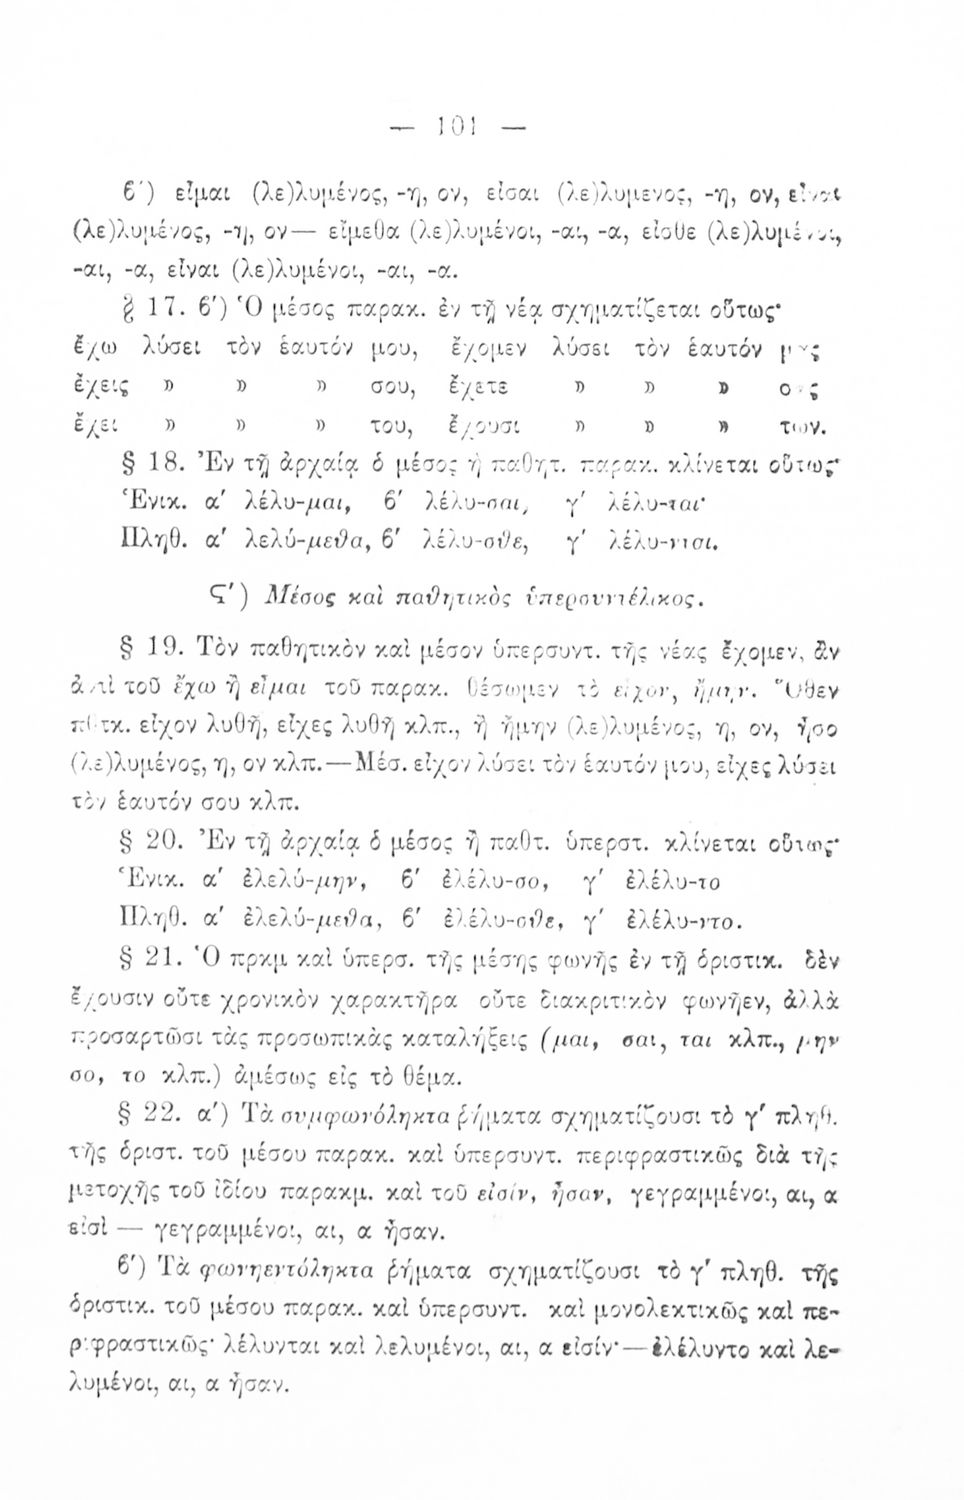 — 101 —
ϐ΄) εἶμαι (λε)λυμένος, -η, ον, εἶσαι (λε)λυμενος, -η, ον, εἶναι
(λε)λυμένος, -η, ον— εἴμεθα (λε)λυμένοι, -αι, -α, εἶσθε (λε)λυμένοι,
-αι, -α, εἶναι (λε)λυμένοι, -αι, -α.
§ 17. ϐ΄) Ὁ μέσος παρακ. ἐν τῇ νέᾳ σχηματίζεται οὕτως·
ἔχω λύσει τὸν ἑαυτόν μου, ἔχομεν λύσει τὸν ἑαυτόν μας
ἔχεις » » » σου, ἔχετε » » » σας
ἔχει » » » του, ἔχουσι » » » των.
§ 18. Ἐν τῇ ἀρχαίᾳ ὁ μέσος ἡ παθητ. παρακ. κλίνεται οὕτως·
Ἑνικ. α΄ λέλυ-μαι, ϐ΄ λέλυ-σαι, γ΄ λέλυ-ται·
Πληθ. α΄ λελύ-μεθα, ϐ΄ λέλυ-σθε, γ΄ λέλυ-νται.
Ϛ΄) Μέσος καὶ παθητικὸς ὑπερσυντέλικος.
§ 19. Τὸν παθητικὸν καὶ μέσον ὑπερσυντ. τῆς νέας ἔχομεν, ἂν
ἀντὶ τοῦ ἔχω ἢ εἶμαι τοῦ παρακ. θέσωμεν τὸ εἶχον, ἤμην. Ὅθεν
πατκ. εἶχον λυθῆ, εἶχες λυθῆ κλπ., ἢ ἤμην (λε)λυμένος, η, ον, ἦσο
(λε)λυμένος, η, ον κλπ.—Μέσ. εἶχον λύσει τὸν ἑαυτόν μου, εἶχες λύσει
τὸν ἑαυτόν σου κλπ.
§ 20. Ἐν τῇ ἀρχαίᾳ ὁ μέσος ἢ παθτ. ὑπερστ. κλίνεται οὕτως·
Ἑνικ. α΄ ἐλελύ-μην, ϐ΄ ἐλέλυ-σο, γ΄ ἐλέλυ-το
Πληθ. α΄ ἐλελύ-μεθα, ϐ΄ ἐλέλυ-σθε, γ΄ ἐλέλυ-ντο.
§ 21. Ὁ πρκμ καὶ ὑπερσ. τῆς μέσης φωνῆς ἐν τῇ ὁριστικ. δὲν
ἔχουσιν οὔτε χρονικὸν χαρακτῆρα οὔτε διακριτικὸν φωνῆεν, ἀλλὰ
προσαρτῶσι τὰς προσωπικὰς καταλήξεις (μαι, σαι, ται κλπ., μην
σο, το κλπ.) ἀμέσως εἰς τὸ θέμα.
§ 22. α΄) Τὰ συμφωνόληκτα ῥήματα σχηματίζουσι τὸ γ΄ πληθ.
τῆς ὁριστ. τοῦ μέσου παρακ. καὶ ὑπερσυντ. περιφραστικῶς διὰ τῆς
μετοχῆς τοῦ ἰδίου παρακμ. καὶ τοῦ εἰσίν, ἦσαν, γεγραμμένοι, αι, α
εἰσὶ — γεγραμμένοι, αι, α ἦσαν.
ϐ΄) Τὰ φωνηεντόληκτα ῥήματα σχηματίζουσι τὸ γ΄ πληθ. τῆς
ὁριστικ. τοῦ μέσου παρακ. καὶ ὑπερσυντ. καὶ μονολεκτικῶς καὶ πε-
ριφραστικῶς· λέλυνται καὶ λελυμένοι, αι, α εἰσίν·—ἐλέλυντο καὶ λε-
λυμένοι, αι, α ἦσαν.